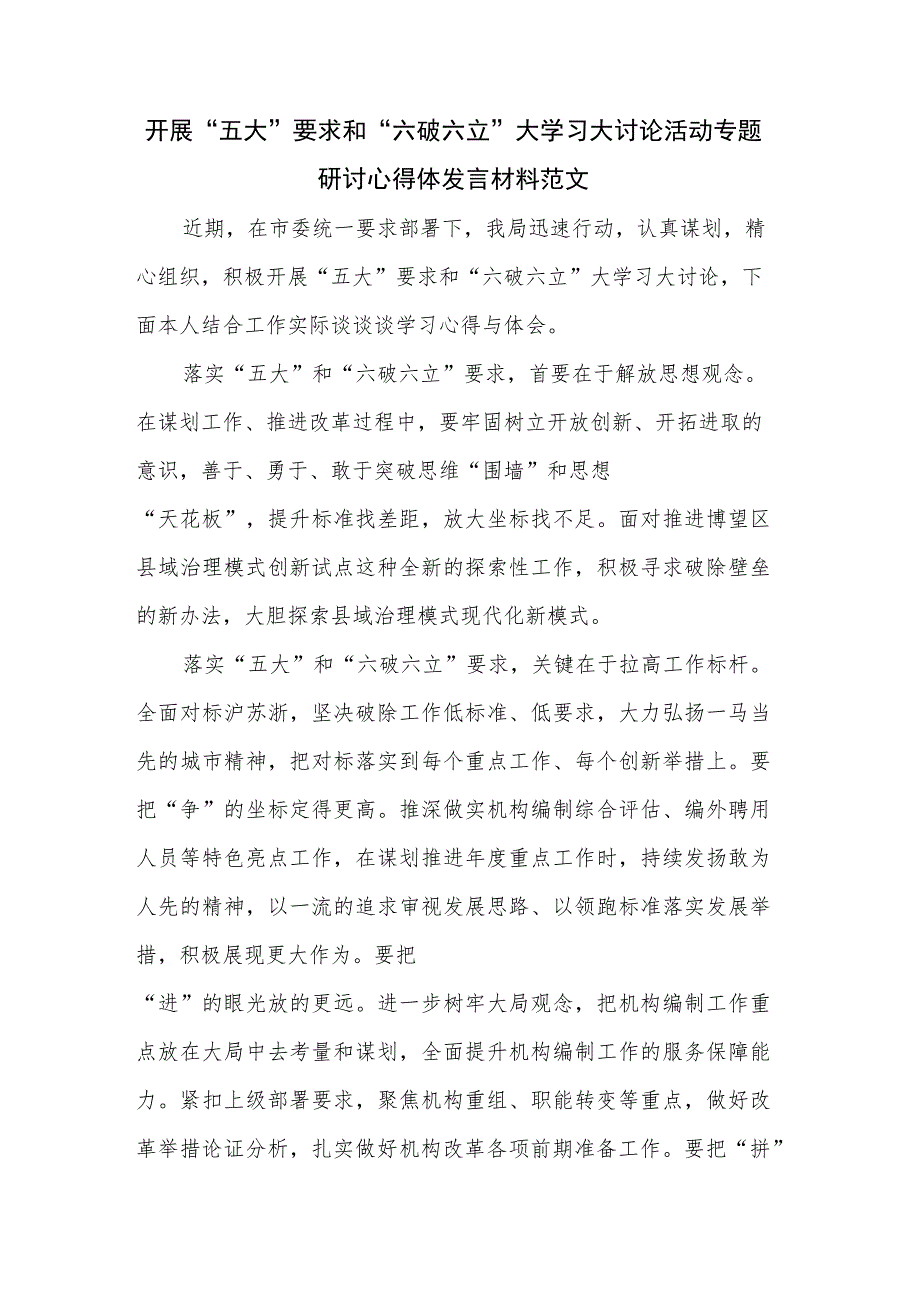 开展“五大”要求和“六破六立”大学习大讨论活动专题
研讨心得体发言材料范文
近期，在市委统一要求部署下，我局迅速行动，认真谋划，精
心组织，积极开展“五大”要求和“六破六立”大学习大讨论，下
面本人结合工作实际谈谈谈学习心得与体会。
落实“五大”和“六破六立”要求，首要在于解放思想观念。
在谋划工作、推进改革过程中，要牢固树立开放创新、开拓进取的
意识，善于、勇于、敢于突破思维“围墙”和思想
“天花板”，提升标准找差距，放大坐标找不足。面对推进博望区
县域治理模式创新试点这种全新的探索性工作，积极寻求破除壁垒
的新办法，大胆探索县域治理模式现代化新模式。
落实“五大”和“六破六立”要求，关键在于拉高工作标杆。
全面对标沪苏浙，坚决破除工作低标准、低要求，大力弘扬一马当
先的城市精神，把对标落实到每个重点工作、每个创新举措上。要
把“争”的坐标定得更高。推深做实机构编制综合评估、编外聘用
人员等特色亮点工作，在谋划推进年度重点工作时，持续发扬敢为
人先的精神，以一流的追求审视发展思路、以领跑标准落实发展举
措，积极展现更大作为。要把
“进”的眼光放的更远。进一步树牢大局观念，把机构编制工作重
点放在大局中去考量和谋划，全面提升机构编制工作的服务保障能
力。紧扣上级部署要求，聚焦机构重组、职能转变等重点，做好改
革举措论证分析，扎实做好机构改革各项前期准备工作。要把“拼”